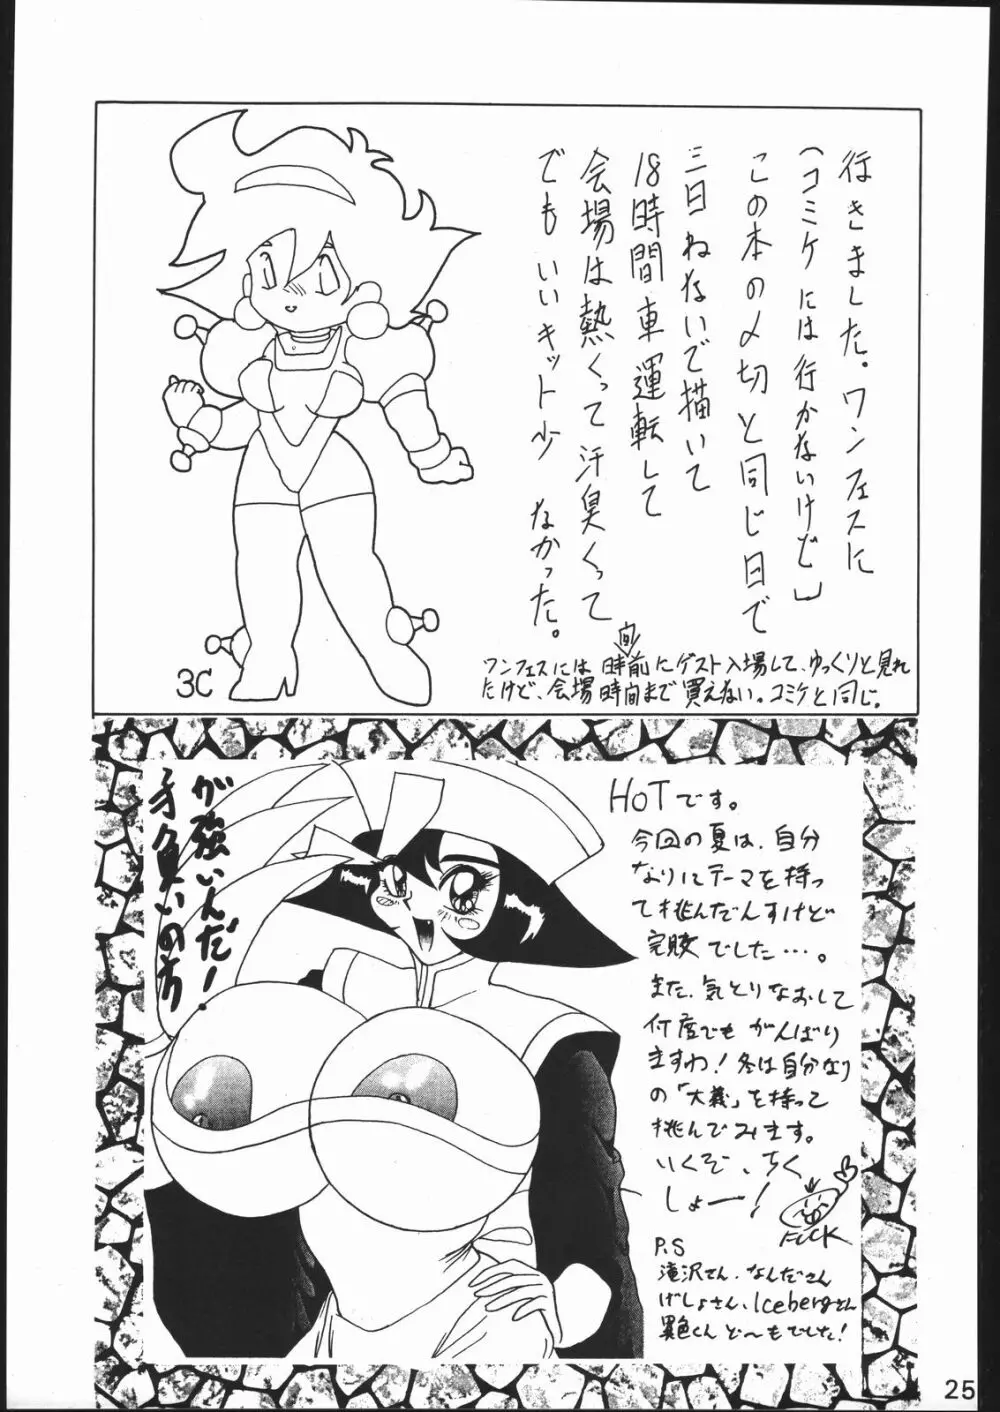 行きました。ワンフェスに
(コミケには行かないけど)
この本の〆切と同じ日で
三日ねないで描いて
18時間車運転して
会場は熱くって汗臭くって
でもいいキット少なかった。
ワンフェスには一時間前にゲスト入場して、ゆっくりと見れ
たけど、会場時間まで買えない。コミケと同じ。
3C
が強いんだ!
才負いの方
HOTです。
今回の夏は、自分
なりにテーマを持っ
て挑んだんすけど
完敗でした…。
また、気とりなおして
何度でもがんばり
ますわ!冬は自分なり
の「大義」を持って
挑んでみます。
いくぞ、ちく
しょー!
FUCK
P.S
滝沢さん、なんださん
げしょさん、Icebergさん
異色くんど〜もでした!
25